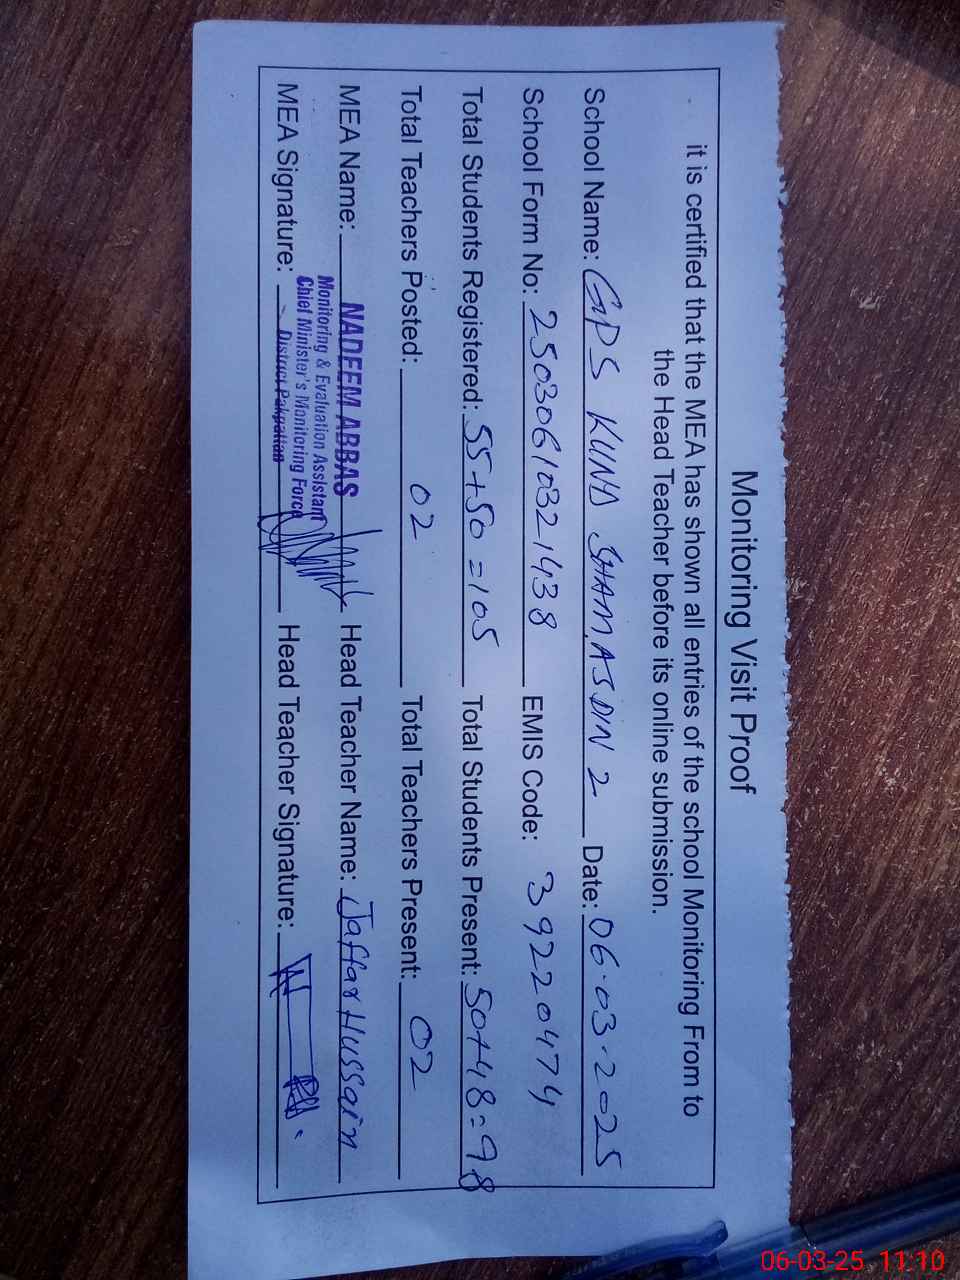 Monitoring Visit Proof
it is certified that the MEA has shown all entries of the school Monitoring From to
the Head Teacher before its online submission.
School Name: GPS KUND SHAMASDIN 2 Date: 06.03.2025
School Form No: 25030610321438 EMIS Code: 39220474
Total Students Registered: 55+50=105 Total Students Present: 50+48=98
Total Teachers Posted: 02 Total Teachers Present: 02
MEA Name: NADEEM ABBAS Head Teacher Name: Jaffar Hussain
Monitoring & Evaluation Assistant
Chief Minister's Monitoring Force
MEA Signature: District Pakpattan Head Teacher Signature:
06-03-25 11:10